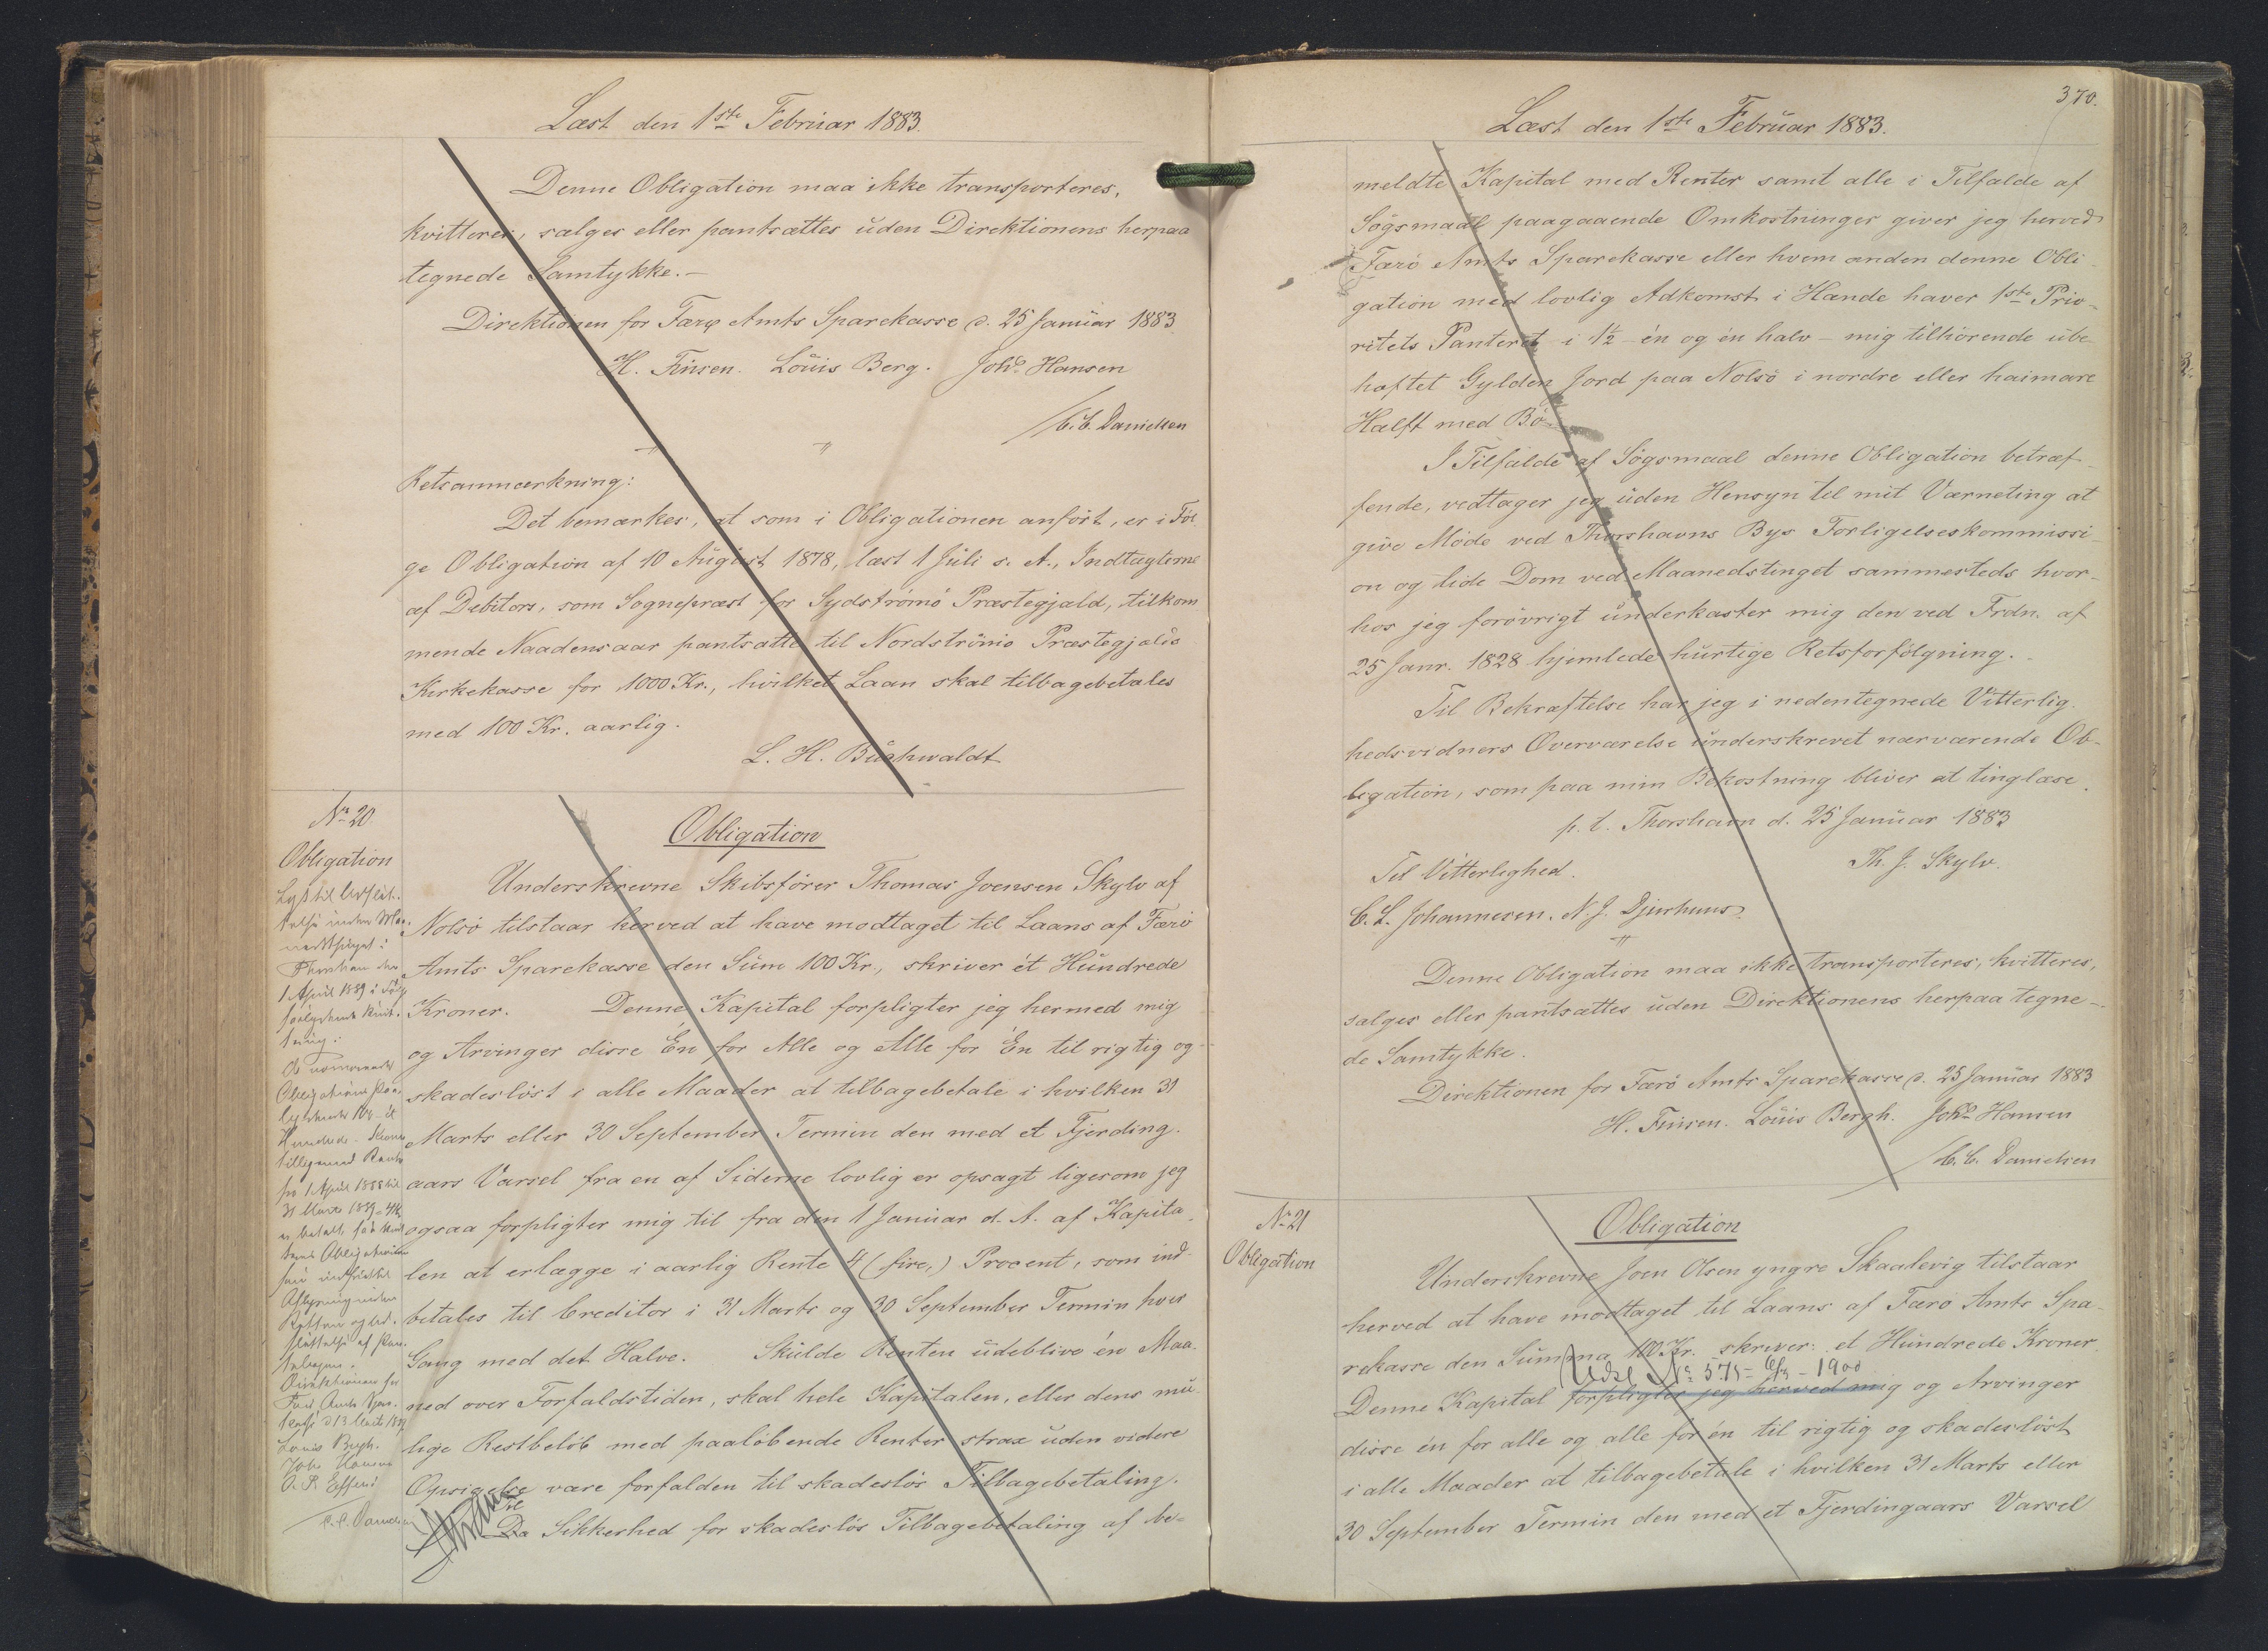 Læst den 1ste Februar 1883.
Denne Obligation maa ikke transporteres,
kvitteres, sælges eller pantsættes uden Direktionens herpaa
tegnede Samtykke.-
Direktionen for Færø Amts Sparekasse d. 25 Januar 1883.
H. Finsen. Louis Berg. Johs. Hansen
/C.C. Danielsen
Retsanmærkning:
Det bemærkes, at som i Obligationen anført, er i Føl
ge Obligation af 10 August 1878, læst 1 Juli s. A., Indtægterne
af Debitors, som Sognepræst for Sydstrømø Præstegjæld, tilkom
mende Naadensaar pantsatte til Nordstrømø Præstegjælds
Kirkekasse for 1000 Kr., hvilket Laan skal tilbagebetales
med 100 Kr. aarlig.
L. H. Buchwaldt
No 20.
Obligation
Lyst til Udslet-
telse inden Maa-
nedsthinget i
Thorshavn den
1 April 1889 i Følge
saalydende Kvit-
tering:
Obligationens paa-
lydende 100 - et
Hundrede - Kroner
tilligemed Rente
fra 1 April 1888 til
31 Marts 1889 - 4 Kr
er betalt,
Obligation
Aflysning inden
Retten og Ud-
slettelse af Pan-
tebogen.
Direktionen for
Færø Amts Spare-
kasse d 13 Marts 1889
Louis Bergh.
Johs Hansen
/C.C. Danielsen
Obligation
Underskrevne Skibsfører Thomas Joensen Skylv af
Nolsø tilstaar herved at have modtaget til Laans af Færø
Amts Sparekasse den Sum 100 Kr., skriver ét Hundrede
Kroner. Denne Kapital forpligter jeg hermed mig
og Arvinger disse Én for Alle og Alle for Én til rigtig og
skadesløst i alle Maader at tilbagebetale i hvilken 31
Marts eller 30 September Termin den med et Fjerding-
aars Varsel fra en af Siderne lovlig er opsagt ligesom jeg
ogsaa forpligter mig til fra den 1 Januar d. A. af Kapita-
len at erlægge i aarlig Rente 4 (fire,) Procent, som ind-
betales til Creditor i 31 Marts og 30 September Termin hver
Gang med det Halve. Skulde Renten udeblive én Maa-
ned over Forfaldstiden, skal hele Kapitalen, eller dens mu-
lige Restbeløb med paaløbende Renter strax uden videre
Opsigelse være forfalden til skadesløs Tilbagebetaling.
Til
Da Sikkerhed for skadesløs Tilbagebetaling af be-
370.
Læst den 1ste Februar 1883.
meldte Kapital med Renter samt alle i Tilfælde af
Søgsmaal paagaaende Omkostninger giver jeg herved
Færø Amts Sparekasse eller hvem anden denne Obli-
gation med lovlig Adkomst i Hænde haver 1ste Prio-
ritets Panteret i 1½ - én og én halv - mig tilhørende ube
hæftet Gylden Jord paa Nolsø i nordre eller haimare
Hælft med Bø
I Tilfælde af Søgsmaal denne Obligation betræf-
fende, vedtager jeg uden Hensyn til mit Værneting at
give Møde ved Thorshavns Bys Forligelseskommissi-
on og lide Dom ved Maanedstinget sammesteds hvor-
hos jeg forøvrigt underkaster mig den ved Frdn. af
25 Janr. 1828 hjemlede hurtige Retsforfølgning.-
Til Bekræftelse har jeg i nedentegnede Vitterlig-
hedsvidners Overværelse underskrevet nærværende Ob-
ligation, som paa min Bekostning bliver at tinglæse.
p. t. Thorshavn d. 25 Januar 1883
Th. J. Skylv.
Til Vitterlighed.
C. L. Johannesen. N. J. Djurhuus.
Denne Obligation maa ikke transporteres, kvitteres,
sælges eller pantsættes uden Direktionens herpaa tegne-
de Samtykke.
Direktionen for Færø Amts Sparekasse d. 25 Januar 1883
H. Finsen. Louis Bergh. Johs Hansen
/C. C. Danielsen
No 21
Obligation
Obligation
Underskrevne Joen Olsen yngre Skaalevig tilstaar
herved at have modtaget til Laans af Færø Amts Spa-
rekasse den Summa 100 Kr. skriver: et Hundrede Kroner.
Udsl No 575 - 6/3 - 1900
Denne Kapital forpligter jeg herved mig og Arvinger
disse én for alle og alle for én til rigtig og skadesløst
i alle Maader at tilbagebetale i hvilken 31 Marts eller
30 September Termin den med et Fjerdingaars Varsel